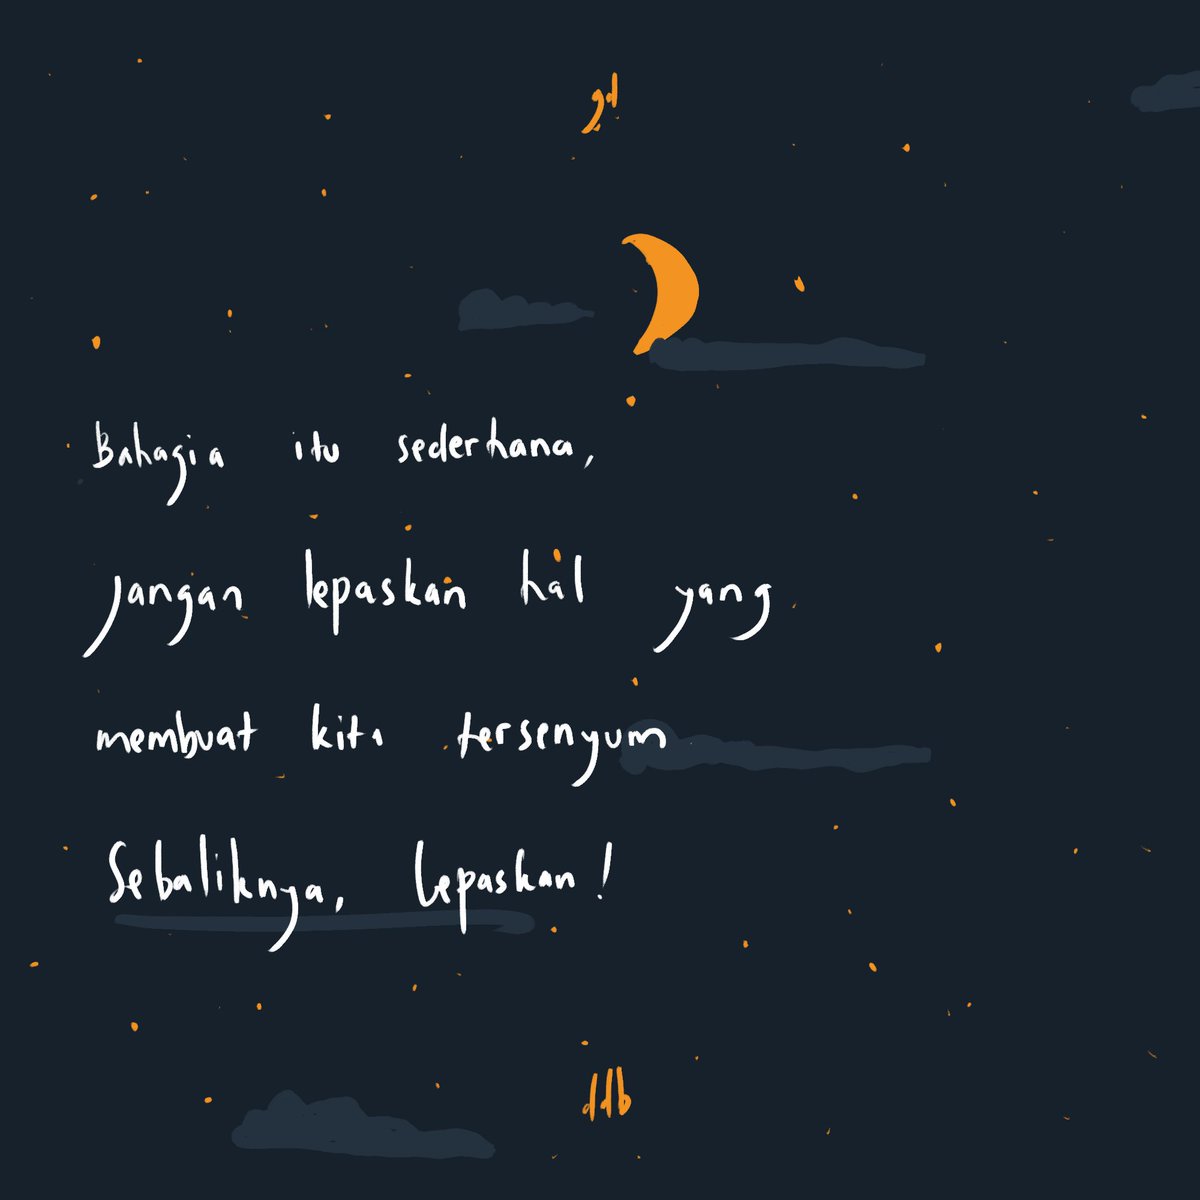 gd
Bahagia itu sederhana,
jangan lepaskan hal yang
membuat kita tersenyum
Sebaliknya, lepaskan!
ddb